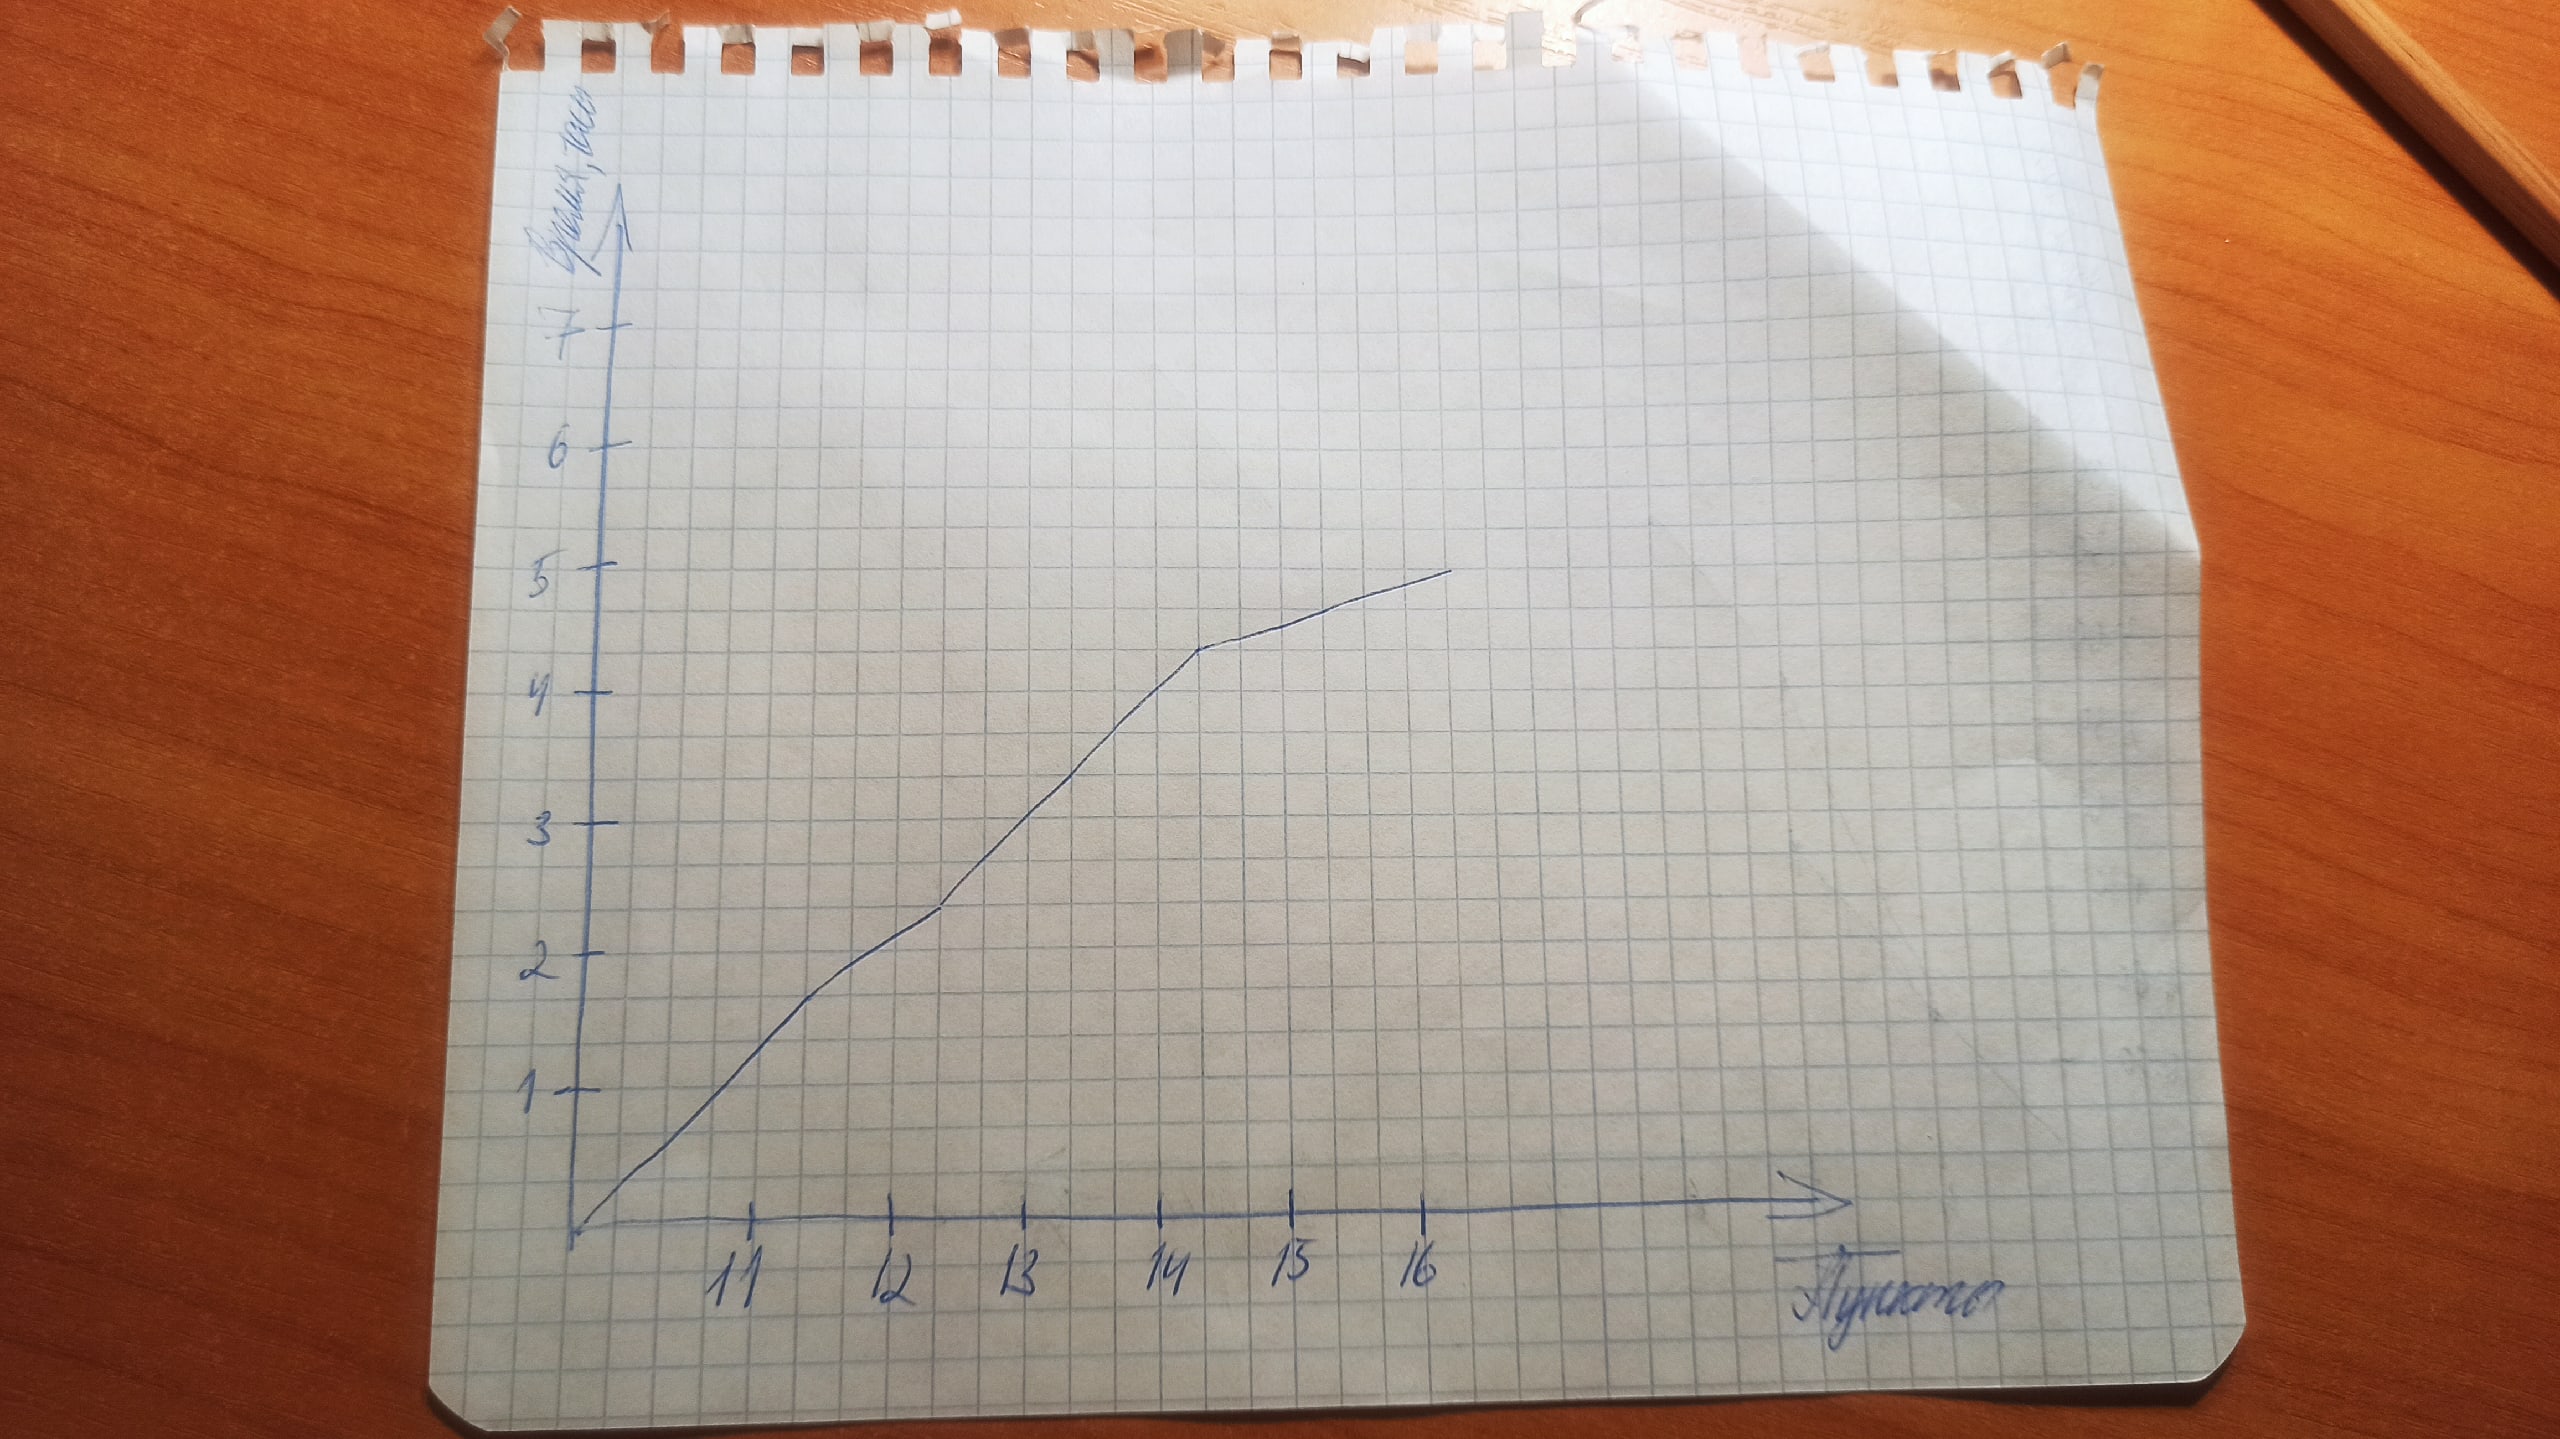 Время, часы
7
6
5
4
3
2
1
11 12 13 14 15 16
Пункты